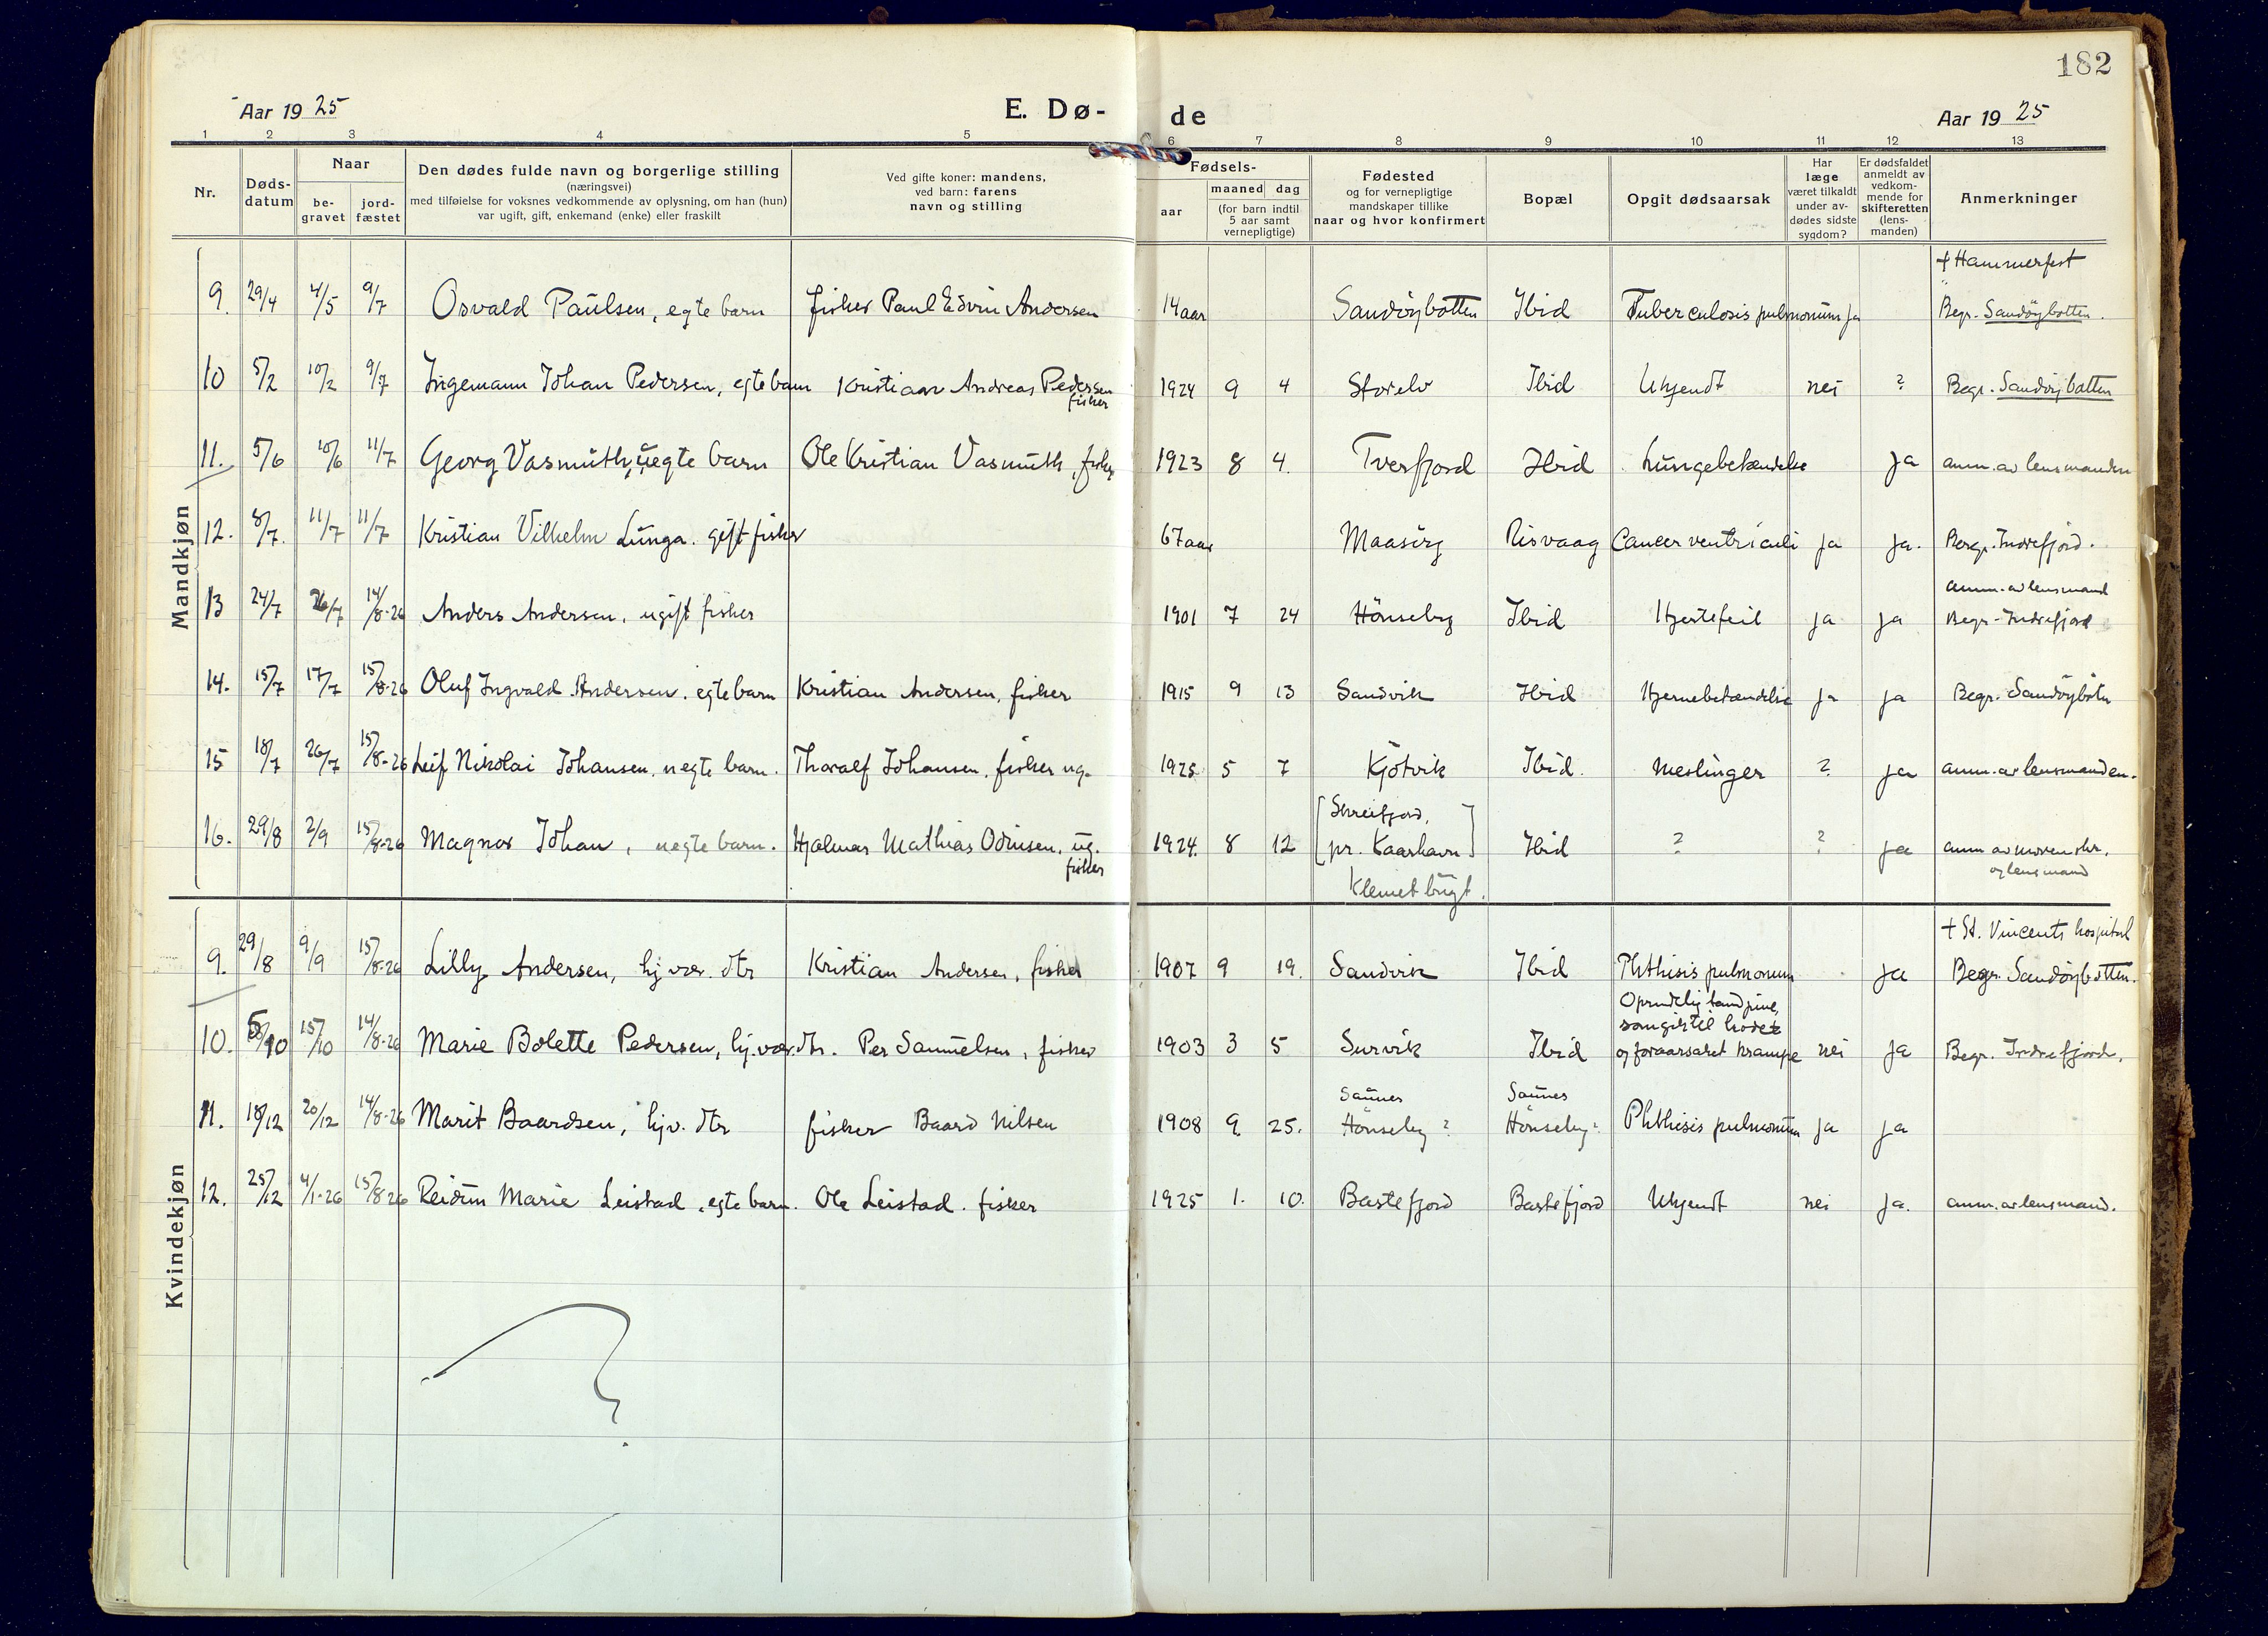 182
Aar 1925
E. Dø-
de
Aar 1925
1 2 3 4 5 6 7 8 9 10 11 12 13
Nr.
Døds-
datum
Naar
be-
gravet
jord-
fæstet
Den dødes fulde navn og borgerlige stilling
(næringsvei)
med tilføielse for voksnes vedkommende av oplysning, om han (hun)
var ugift, gift, enkemand (enke) eller fraskilt
Ved gifte koner: mandens,
ved barn: farens
navn og stilling
Fødsels-
aar
maaned dag
(for barn indtil
5 aar samt
vernepligtige)
Fødested
og for vernepligtige
mandskaper tillike
naar og hvor konfirmert
Bopæl
Opgit dødsaarsak
Har
læge
været tilkaldt
under av-
dødes sidste
sygdom?
Er dødsfaldet
anmeldt av
vedkom-
mende for
skifteretten
(lens-
manden)
Anmerkninger
Mandkjøn
+ Hammerfest
9. 29/4 4/5 9/7 Osvald Paulsen, egte barn fisker Paul Edvin Andersen 14 aar Sandöybotten Ibid Tuberculosis pulmonum ja Begr. Sandöybotten.
10 5/2 10/2 9/7 Ingemann Johan Pedersen, egte barn Kristian Andreas Pedersen 1924 9 4 Storelv Ibid Ukjendt nei ? Begr. Sandöybotten
fisker
11. 5/6 10/6 11/7 Georg Vasmuth, uegte barn Ole Kristian Vasmuth, fisker 1923 8 4. Tverfjord Ibid Lungebetændelse ja anm. av lensmanden
12. 8/7. 11/7 11/7 Kristian Vilhelm Lunga. gift fisker 67 aar Maasöy Risvaag Cancer ventriculi ja ja. Begr. Indrefjord.
anm. av lensmand
13 24/7 26/7 14/8-26 Anders Andersen, ugift fisker 1901 7 24 Hönseby Ibid Hjertefeil ja ja Begr. Indrefjord
14. 15/7 17/7 15/8-26 Oluf Ingvald Andersen. egte barn Kristian Andersen, fisker 1915 9 13 Sandvik Ibid Hjernebetændelse ja ja Begr. Sandöybotn
15 18/7 26/7 15/8-26 Leif Nikolai Johansen, uegte barn. Thoralf Johansen, fisker ug. 1925 5 7 Kjötvik Ibid. Meslinger ? ja anm. av lensmanden.
[Skreifjord,
16. 29/8 2/9 15/8-26 Magnor Johan, uegte barn. Hjalmar Mathias Odinsen, ug. 1924. 8 12 pr. Kaarhavn] Ibid ? ? ja anm av moren skr.
fisker
og lensmand
Klemetbugt.
Kvindekjøn
+ St. Vincents hospital
9. 29/8 9/9 15/8-26 Lilly Andersen, hj. vær. dtr Kristian Andersen, fisker 1907 9 19. Sandvik Ibid Phthisis pulmonum ja Begr. Sandöybotten.
Oprindelig tandpine,
som gik til hodet
10. 5/10 15/10 14/8-26 Marie Bolette Pedersen, hj. vær. dtr. Per Samuelsen, fisker 1903 3 5 Survik Ibid og foraarsaket krampe nei ja Begr. Indrefjord.
Saunes Saunes
11. 18/12 20/12 14/8-26 Marit Baardsen, hj v. dtr fisker Baard Nilsen 1908 9. 25. Hönseby ? Hönseby ? Phthisis pulmonum ja ja
12. 25/12 4/1-26 15/8-26 Reidun Marie Leistad, egte barn. Ole Leistad. fisker 1925 1. 10. Bastefjord Bastefjord Ukjendt nei ja. anm. av lensmand.